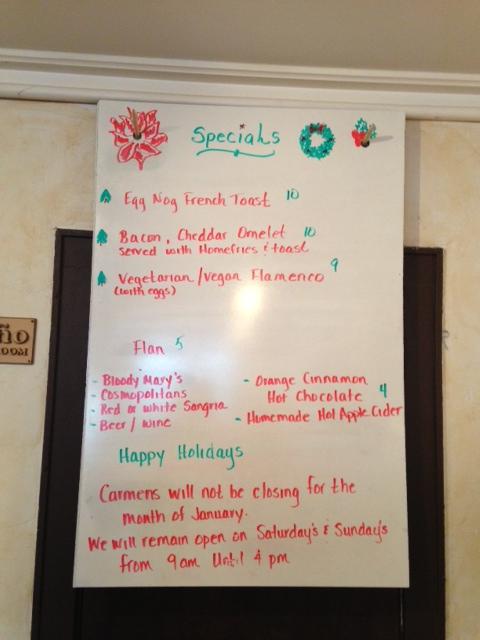 Specials
Egg Nog French Toast 10
Bacon, Cheddar Omelet 10
served with Homefries & toast
Vegetarian/Vegan Flamenco 9
(with eggs)
Flan 5
- Bloody Mary's
- Cosmopolitans
- Red or white Sangria
- Beer / wine
- Orange Cinnamon
Hot Chocolate 4
- Homemade Hot Apple Cider
Happy Holidays
Carmens will not be closing for the
month of January.
We will remain open on Saturday's & Sunday's
from 9am Until 4 pm
ño
OOM